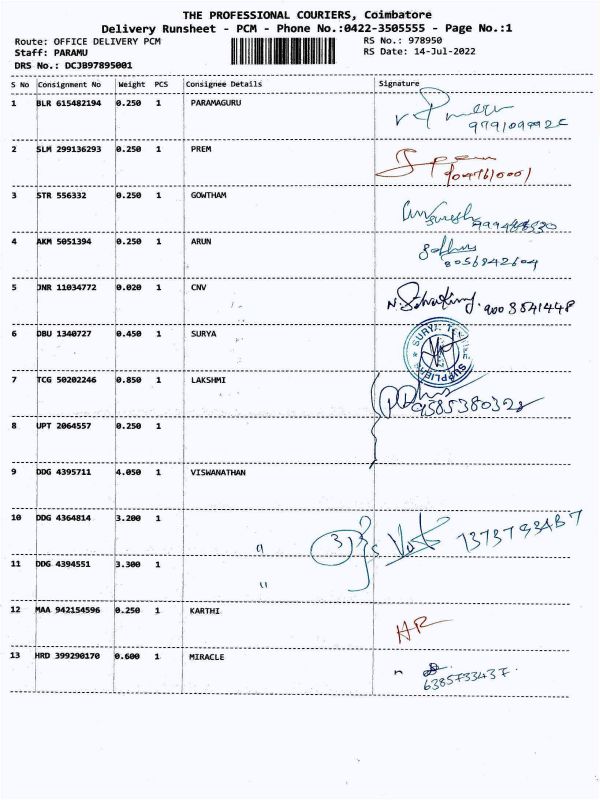 THE PROFESSIONAL COURIERS, Coimbatore
Delivery Runsheet - PCM - Phone No.:0422-3505555 - Page No.:1
Route: OFFICE DELIVERY PCM RS No.: 978950
Staff: PARAMU RS Date: 14-Jul-2022
DRS No.: DCJB97895001
S No Consignment No Weight PCS Consignee Details Signature
1 BLR 615482194 0.250 1 PARAMAGURU
2 SLM 299136293 0.250 1 PREM
3 STR 556332 0.250 1 GOWTHAM
4 AKM 5051394 0.250 1 ARUN
8056942604
5 JNR 11034772 0.020 1 CNV
9003541448
6 DBU 1340727 0.450 1 SURYA
7 TCG 50202246 0.850 1 LAKSHMI
8 UPT 2064557 0.250 1
9 DDG 4395711 4.050 1 VISWANATHAN
10 DDG 4364814 3.200 1
3
11 DDG 4394551 3.300 1
12 MAA 942154596 0.250 1 KARTHI
13 HRD 399290170 0.600 1 MIRACLE
6385733437